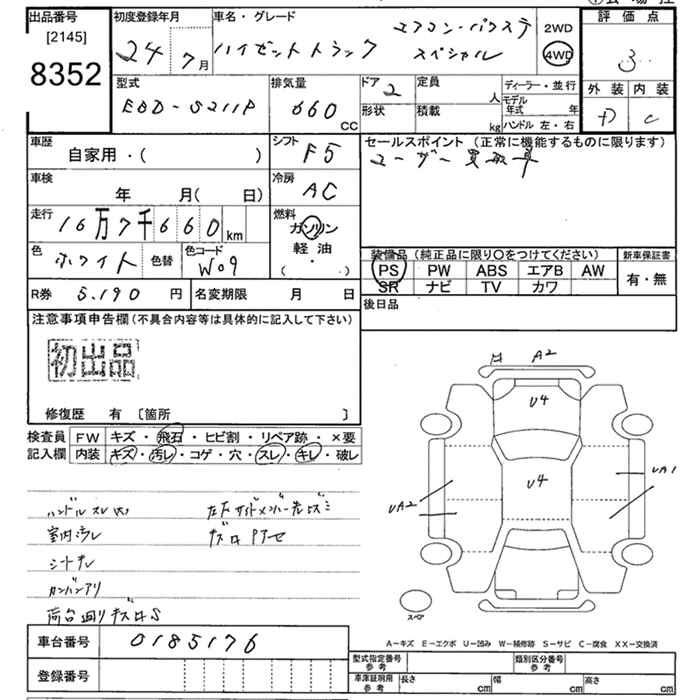 出品番号
[2145]
8352
初度登録年月
24年7月
車名・グレード
エアコン・パワステ
ハイゼットトラック スペシャル
2WD
4WD
評価点
3
外装 内装
D C
型式
EBD-S211P
排気量
660 CC
ドア 2
形状
定員 人
積載 kg
ディーラー・並行
モデル年式 年
ハンドル 左・右
車歴
自家用・( )
シフト
F5
セールスポイント (正常に機能するものに限ります)
ユーザー買取車
車検
年 月( 日)
冷房
AC
走行
16万7千660 km
燃料
ガソリン
軽油
( ・ )
色
ホワイト
色替
色コード
W09
装備品 (純正品に限り○をつけてください)
PS PW ABS エアB AW
SR ナビ TV カワ
新車保証書
有・無
R券 5.190 円
名変期限 月 日
後日品
注意事項申告欄 (不具合内容等は具体的に記入して下さい)
初出品
修復歴 有 〔箇所 〕
検査員記入欄
FW キズ・飛石・ヒビ割・リペア跡・×要
内装 キズ・汚レ・コゲ・穴・スレ・キレ・破レ
ハンドルスレ 大
室内汚レ
シートキレ
カンバンアリ
荷台廻りキズロS
左下サイドメンバー先
キズロアセ
A2
U4
U4
UA2
UA1
スペア
A-キズ E-エクボ U-凹み W-補修跡 S-サビ C-腐食 XX-交換済
車台番号
0185176
登録番号
型式指定番号 参考
類別区分番号 参考
車庫証明用 参考
長さ cm 幅 cm 高さ cm